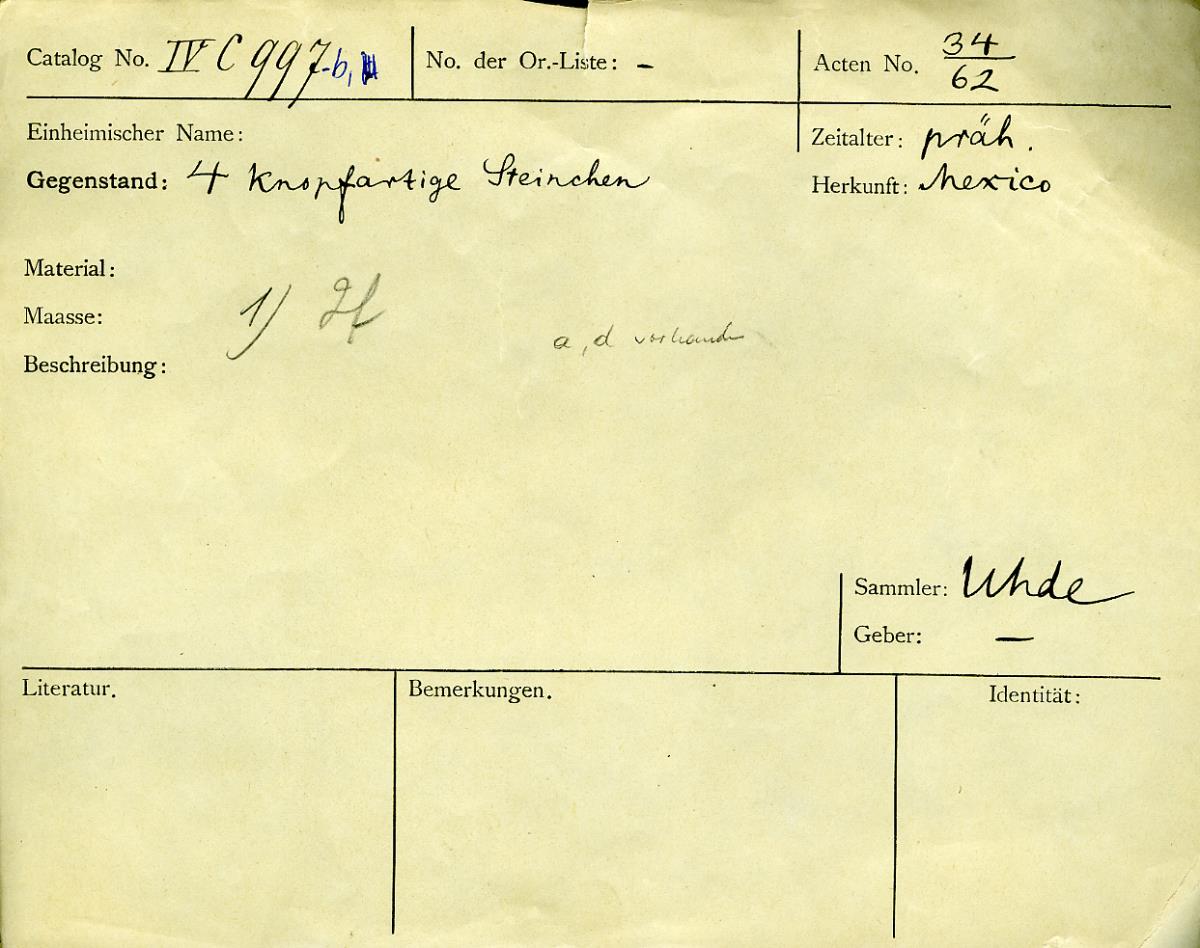 Catalog No. IV C 997-b,
No. der Or.-Liste: –
Acten No. 34/62
Einheimischer Name:
Zeitalter: präh.
Gegenstand: 4 knopfartige Steinchen
Herkunft: Mexico
Material:
Maasse:
1)
a, d vorhanden
Beschreibung:
Sammler: Uhde
Geber: —
Literatur.
Bemerkungen.
Identität: